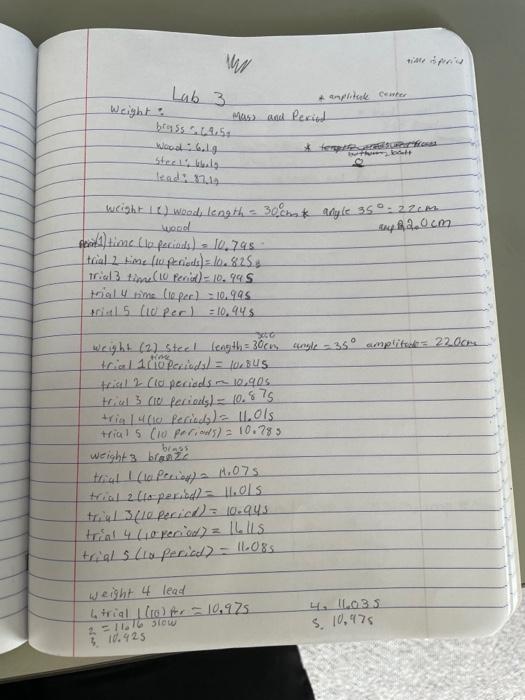 time is period
Lab 3
* amplitude center
Weight:
Mass and Period
brass: 69.5g
wood: 6.1g
steel: 66.1g
lead: 87.1g
weight (1) wood, length = 30.0cm * angle 35° = 22cm
wood
amp 22.0cm
trial 1) time (10 periods) = 10.79s
trial 2 time (10 periods) = 10.82s
trial 3 time (10 period) = 10.99s
trial 4 time (10 per) = 10.99s
trial 5 (10 per) = 10.94s
weight (2) steel length = 30cm angle = 35° amplitude = 22.0cm
30.0
trial 1 (10 periods) = 10.84s
time
trial 2 (10 periods = 10.90s
trial 3 (10 periods) = 10.87s
trial 4 (10 periods) = 11.01s
trial 5 (10 periods) = 10.78s
brass
weight 3
trial 1 (10 period) = 11.07s
trial 2 (10 period) = 11.01s
trial 3 (10 period) = 10.94s
trial 4 (10 period) = 11.11s
trial 5 (10 period) = 11.08s
weight 4 lead
1. trial 1 (10) per = 10.97s
2 = 11.16 slow
3. 10.92s
4. 11.03s
5. 10.97s